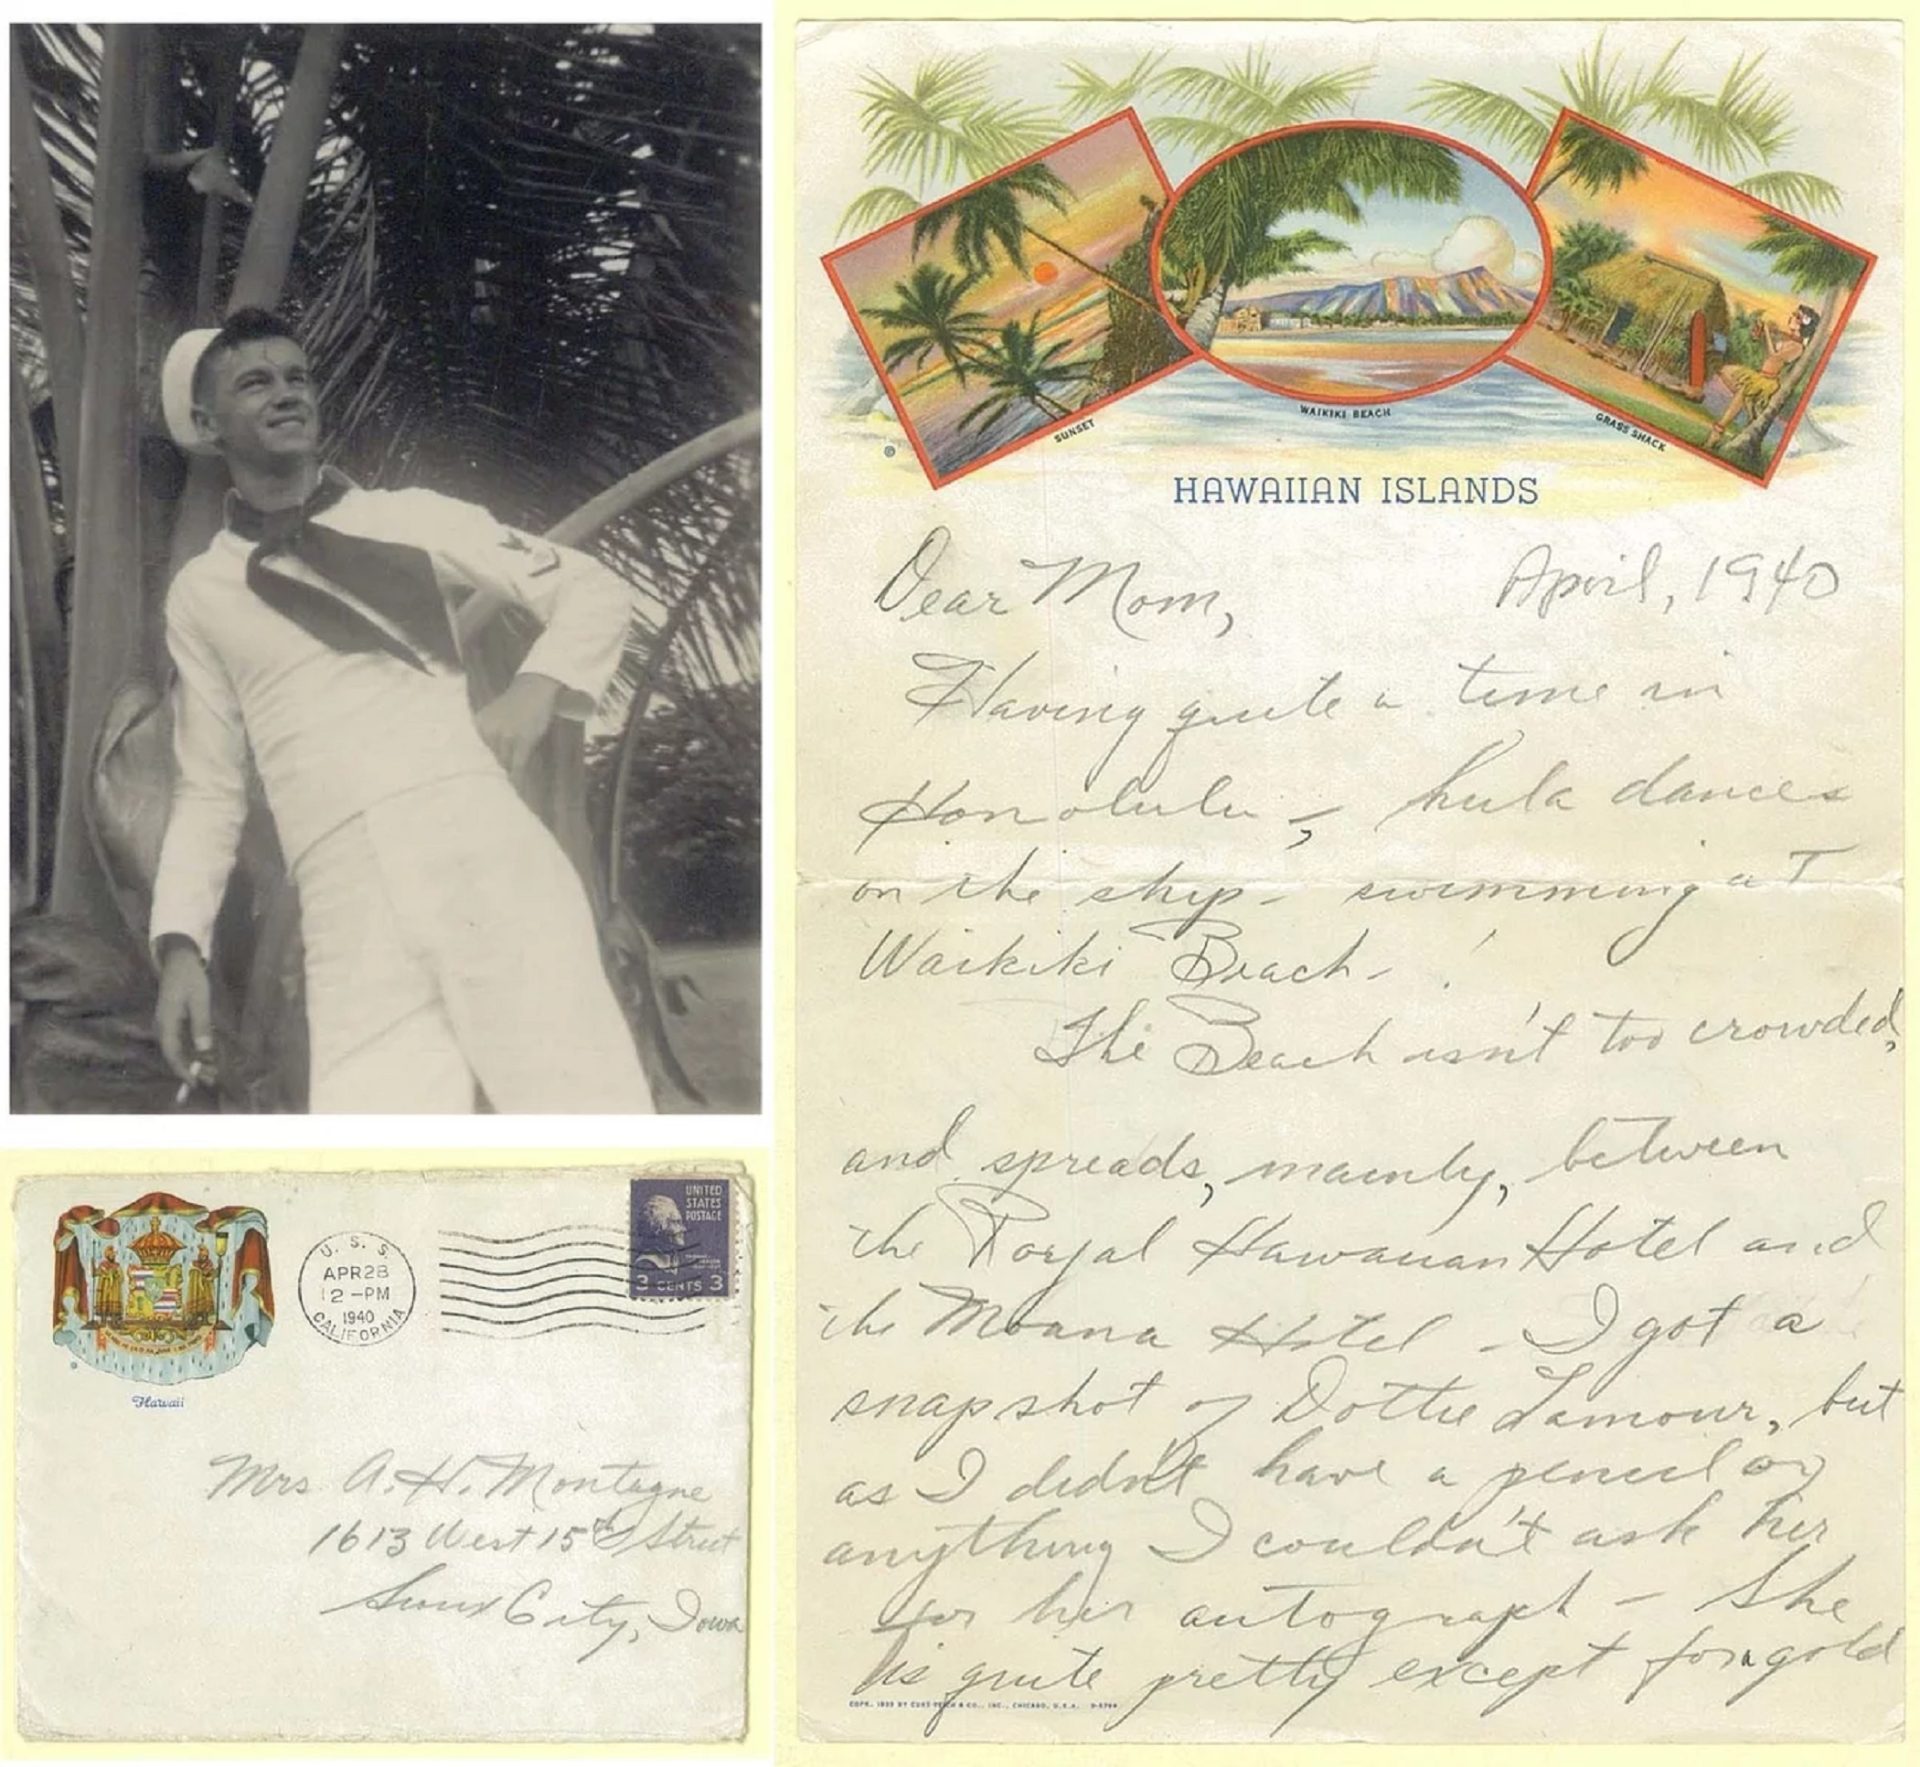 U. S. S.
APR 28
12-PM
1940
CALIFORNIA
UNITED
STATES
POSTAGE
3 CENTS 3
Hawaii
Mrs A. H. Montagne
1613 West 15th Street
Sioux City, Iowa
SUNSET
WAIKIKI BEACH
GRASS SHACK
HAWAIIAN ISLANDS
Dear Mom,
April, 1940
Having quite a time in
Honolulu -, hula dances
on the ship - swimming at
Waikiki Beach - !
The Beach isn't too crowded,
and spreads, mainly, between
the Royal Hawaiian Hotel and
the Moana Hotel - I got a
snapshot of Dottie Lamour, but
as I didn't have a pencil or
anything I couldn't ask her
for her autograph - She
is quite pretty except for a gold
COPR. 1939 BY CURT TEICH & CO., INC., CHICAGO, U.S.A.